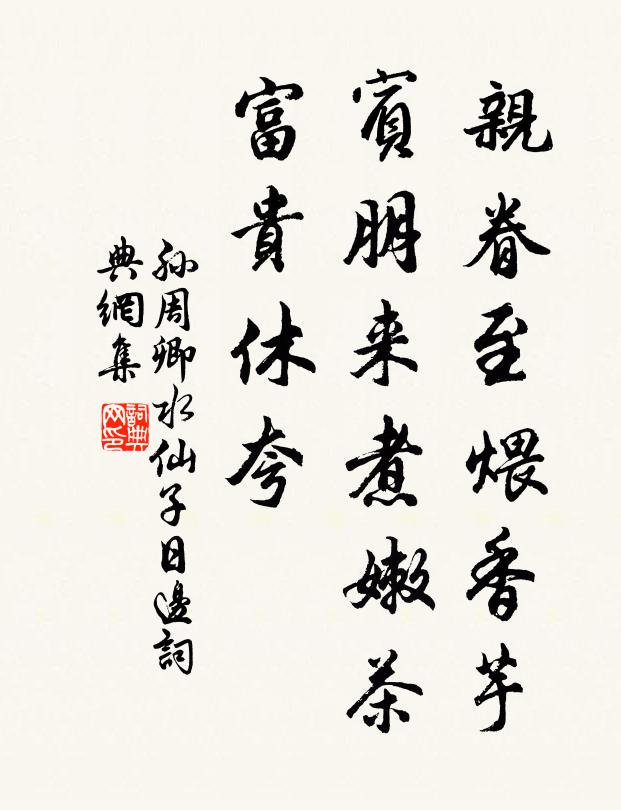 親眷至煨香芋
賓朋来煮嫩茶
富貴休夸
孫周卿水仙子日邊詞
典網集
詞典
网印